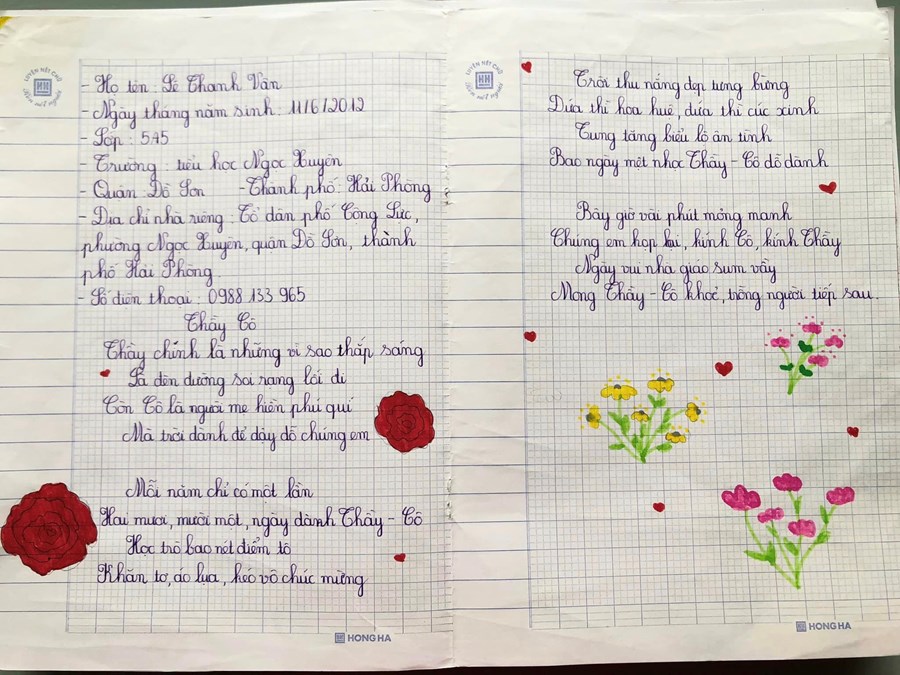 LUYỆN NÉT CHỮ
RÈN NẾT NGƯỜI
HH
- Họ tên: Lê Thanh Vân
- Ngày tháng năm sinh: 11/6/2012
- Lớp: 5A5
- Trường: tiểu học Ngọc Xuyên
- Quận: Đồ Sơn - Thành phố: Hải Phòng
- Địa chỉ nhà riêng: Tổ dân phố Công Lực,
phường Ngọc Xuyên, quận Đồ Sơn, thành
phố Hải Phòng
- Số điện thoại: 0988 133 965
Thầy Cô
Thầy chính là những vì sao thắp sáng
Là đèn đường soi rạng lối đi
Còn Cô là người mẹ hiền phú quí
Mà trời dành để dậy dỗ chúng em
Mỗi năm chỉ có một lần
Hai mươi, mười một, ngày dành Thầy - Cô
Học trò bao nét điểm tô
Khăn tơ, áo lụa, kéo vô chúc mừng
HONG HA
LUYỆN NÉT CHỮ
RÈN NẾT NGƯỜI
HH
Trời thu nắng đẹp tưng bừng
Đứa thì hoa huệ, đứa thì cúc xinh
Tung tăng biểu lộ ân tình
Bao ngày mệt nhọc Thầy - Cô dỗ dành
Bây giờ vài phút mỏng manh
Chúng em họp lại, kính Cô, kính Thầy
Ngày vui nhà giáo sum vầy
Mong Thầy - Cô khoẻ, trồng người tiếp sau.
HONG HA